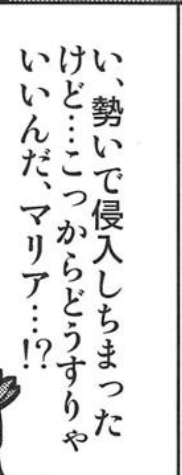 い、勢いで侵入しちまった
けど…こっからどうすりゃ
いいんだ、マリア…!?